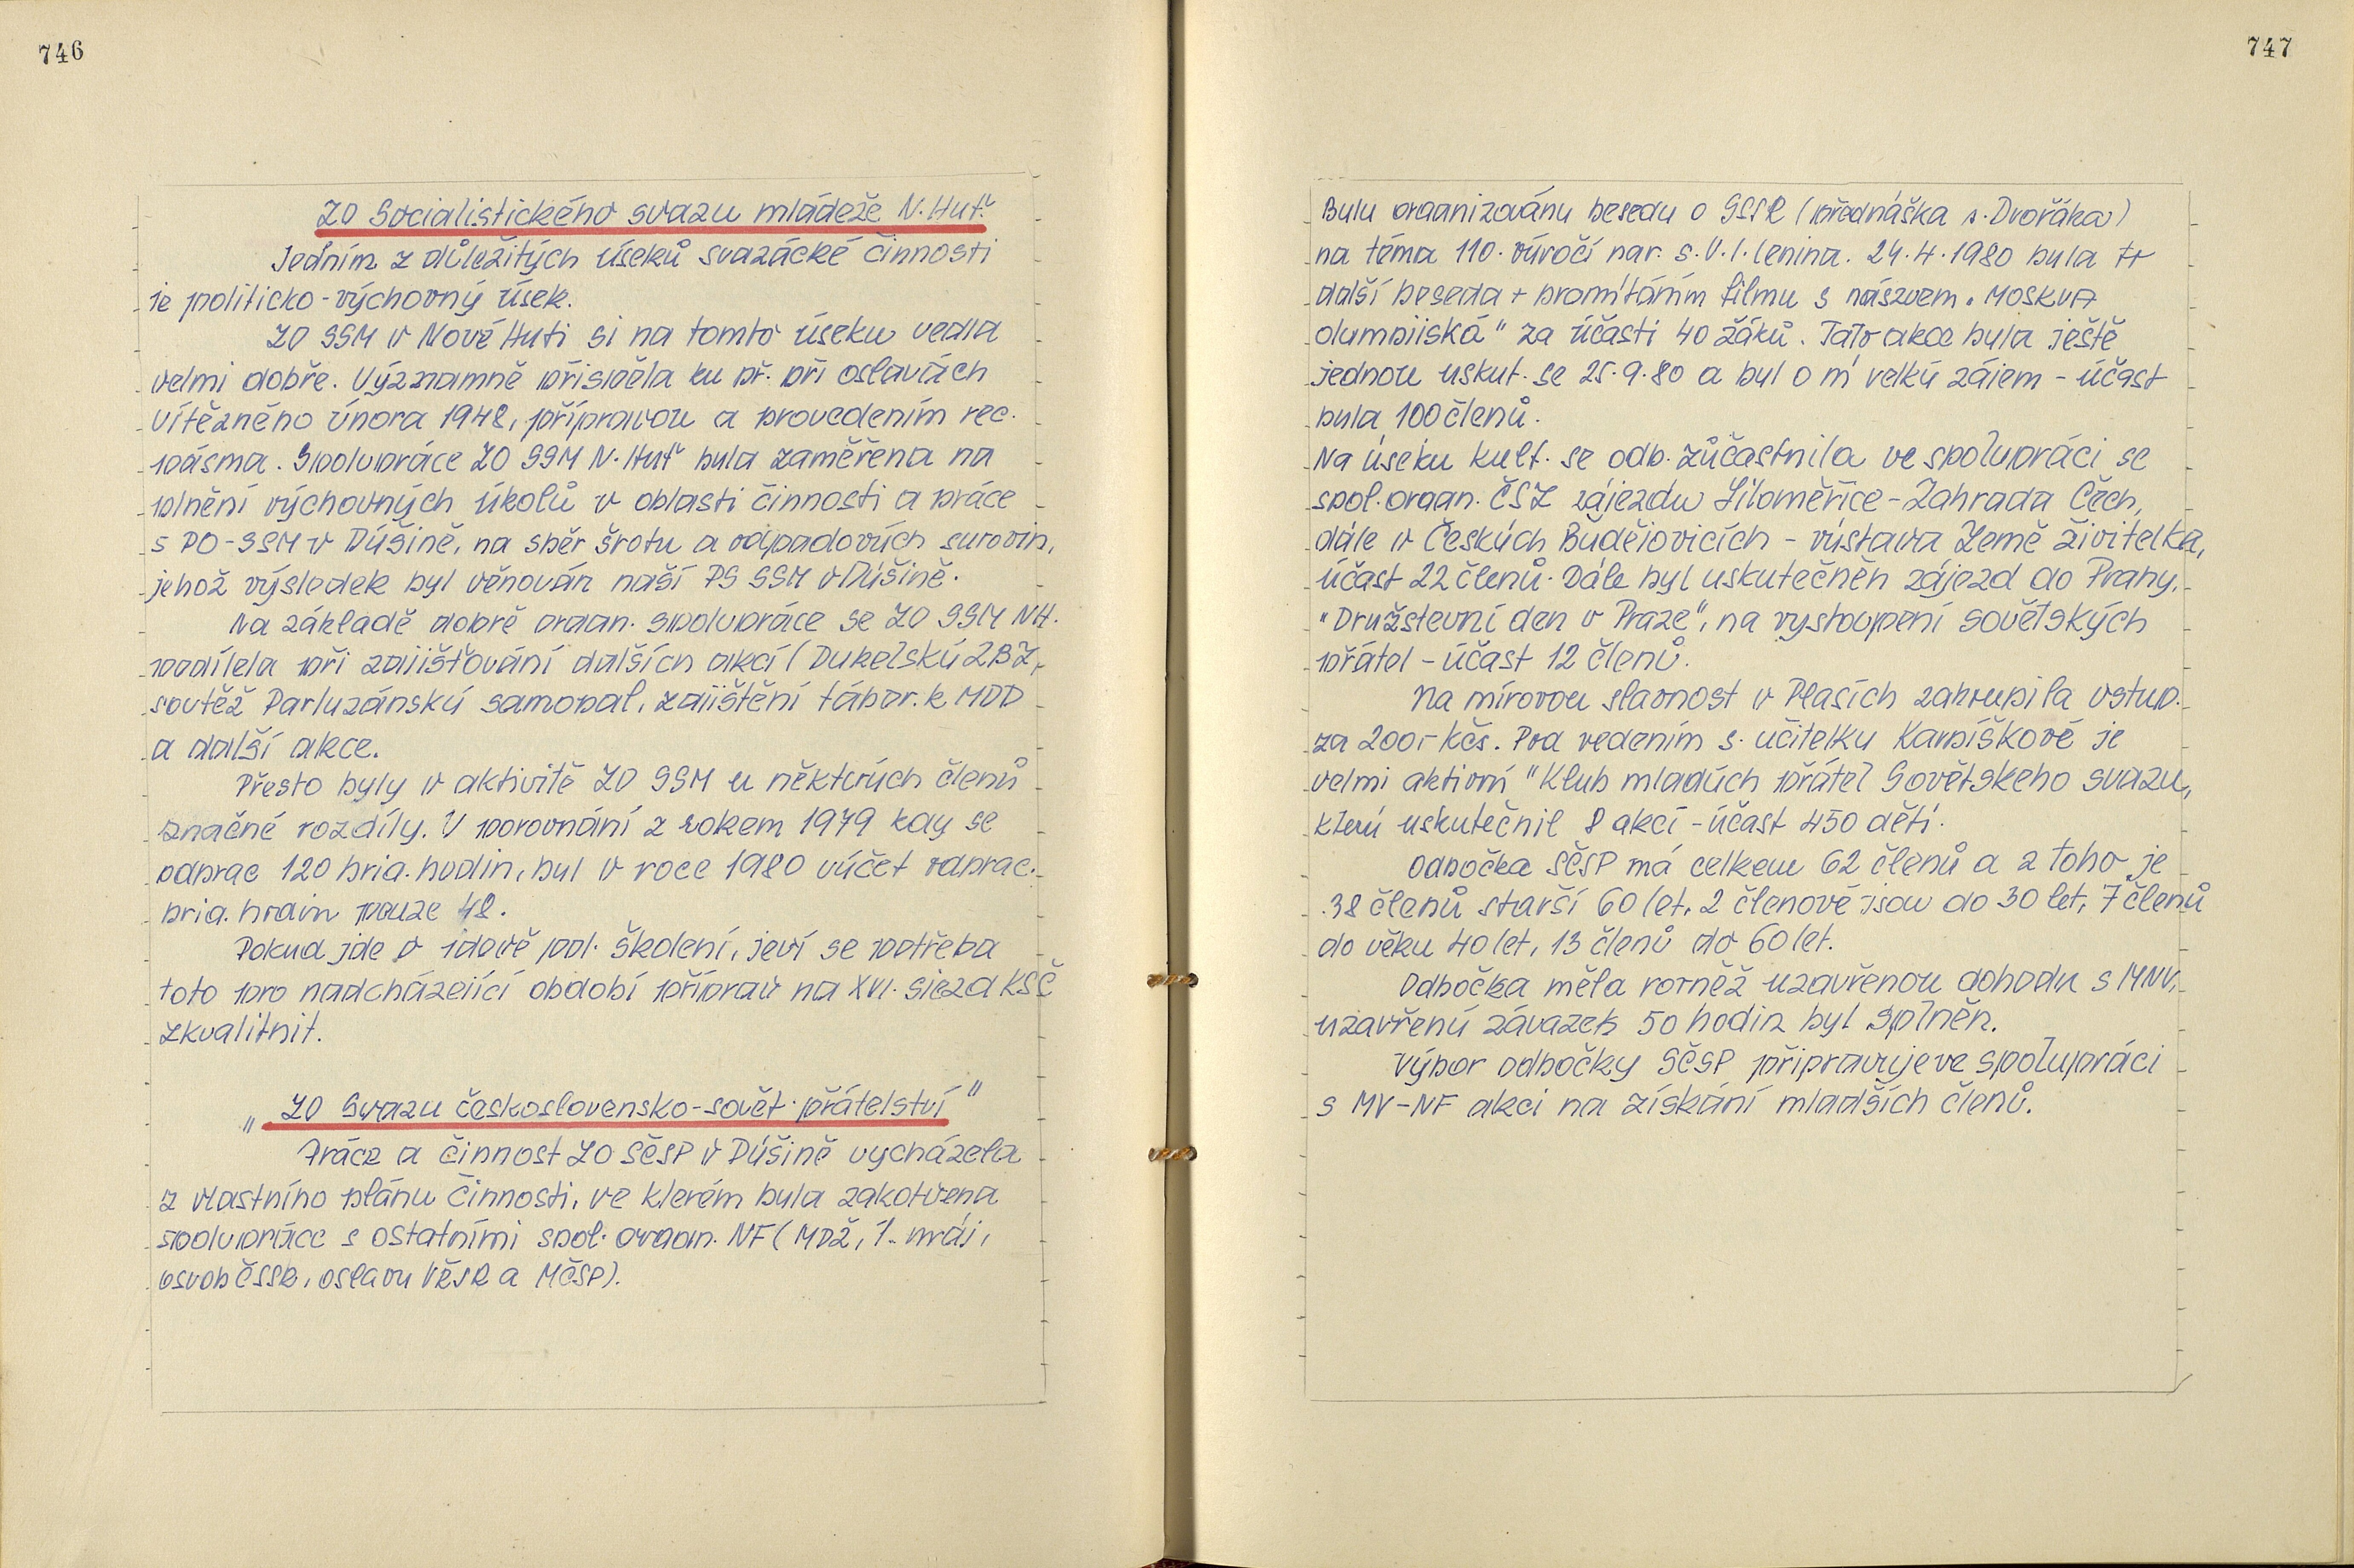 746
ZO Socialistického svazu mládeže N. Huť.
Jedním z důležitých úseků svazácké činnosti
je politicko-výchovný úsek.
ZO SSM v Nové Huti si na tomto úseku vedla
velmi dobře. Významně přispěla ku př. při oslavách
Vítězného února 1948, přípravou a provedením rec.
pásma. Spolupráce ZO SSM N. Huť byla zaměřena na
plnění výchovných úkolů v oblasti činnosti a práce
s PO-SSM v Dýšině, na sběr šrotu a odpadových surovin,
jehož výsledek byl věnován naší PS SSM v Dýšině.
Na základě dobře organ. spolupráce se ZO SSM NH.
podílela při zajišťování dalších akcí (Dukelský ZBZ,
soutěž Partyzánský samopal, zajištění tábor. k MDD
a další akce.
Přesto byly v aktivitě ZO SSM u některých členů
značné rozdíly. V porovnání z rokem 1979 kdy se
odprac 120 brig. hodin, byl v roce 1980 výčet odprac.
brig. hodin pouze 48.
Pokud jde o ideově pol. školení, jeví se potřeba
toto pro nadcházející období příprav na XVI. sjezd KSČ
zkvalitnit.
„ ZO Svazu československo-sovět. přátelství "
Práce a činnost ZO SČSP v Dýšině vycházela
z vlastního plánu činnosti, ve kterém byla zakotvena
spolupráce s ostatními spol. organ. NF (MDŽ, 1. máj,
osvob ČSSR, oslavy VŘSR a MČSP).
747
Byly organizovány besedy o SSSR (přednáška s. Dvořáka)
na téma 110. výročí nar. s. V. I. Lenina. 24. 4. 1980 byla to
další beseda + promítáním filmu s názvem „ MOSKVA
olympijská" za účasti 40 žáků. Tato akce byla ještě
jednou uskut. se 25. 9. 80 a byl o ní velký zájem - účast
byla 100 členů.
Na úseku kult. se odb. zůčastnila ve spolupráci se
spol. organ. ČSZ zájezdu Litoměřice - Zahrada Čech,
dále v Českých Budějovicích - výstava Země živitelka,
účast 22 členů. Dále byl uskutečněn zájezd do Prahy,
"Družstevní den v Praze", na vystoupení sovětských
přátel - účast 12 členů.
Na mírovou slavnost v Plasích zakoupila vstup.
za 200,- Kčs. Pod vedením s. učitelky Karpíškové je
velmi aktivní "Klub mladých přátel Sovětského svazu,
který uskutečnil 8 akcí - účast 450 dětí.
Odbočka SČSP má celkem 62 členů a z toho je
38 členů starší 60 let, 2 členové jsou do 30 let, 7 členů
do věku 40 let, 13 členů do 60 let.
Odbočka měla rovněž uzavřenou dohodu s MNV,
uzavřený závazek 50 hodin byl splněn.
Výbor odbočky SČSP připravuje ve spolupráci
s MV-NF akci na získání mladších členů.